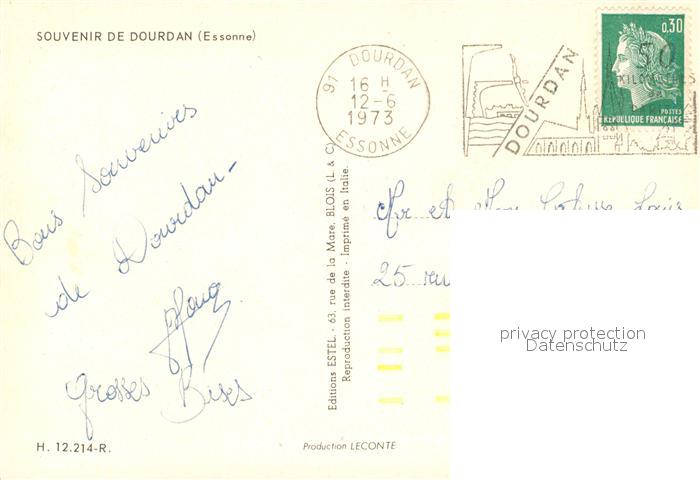 SOUVENIR DE DOURDAN (Essonne)
Bons Souvenirs
de Dourdan-
Grosses Bises
H. 12.214-R.
Production LECONTE
Editions ESTEL - 63, rue de la Mare, BLOIS (L & C)
Reproduction interdite - Imprimé en Italie.
91 DOURDAN
16 H
12-6
1973
ESSONNE
DOURDAN
50
KILOMETRES
0,30
POSTES
REPUBLIQUE FRANÇAISE
Mr et Mme Louis
25 rue
privacy protection
Datenschutz